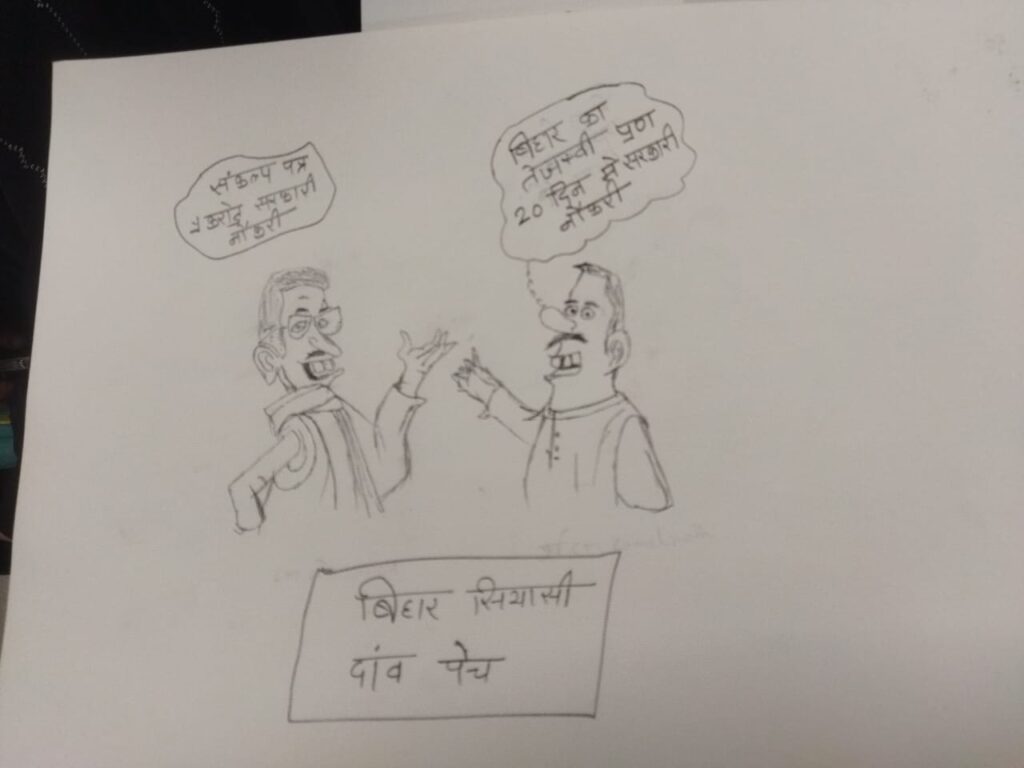 संकल्प पत्र
१ करोड़ सरकारी
नौकरी
बिहार का
तेजस्वी प्रण
20 दिन मे सरकारी
नौकरी
बिहार सियासी
दांव पेच